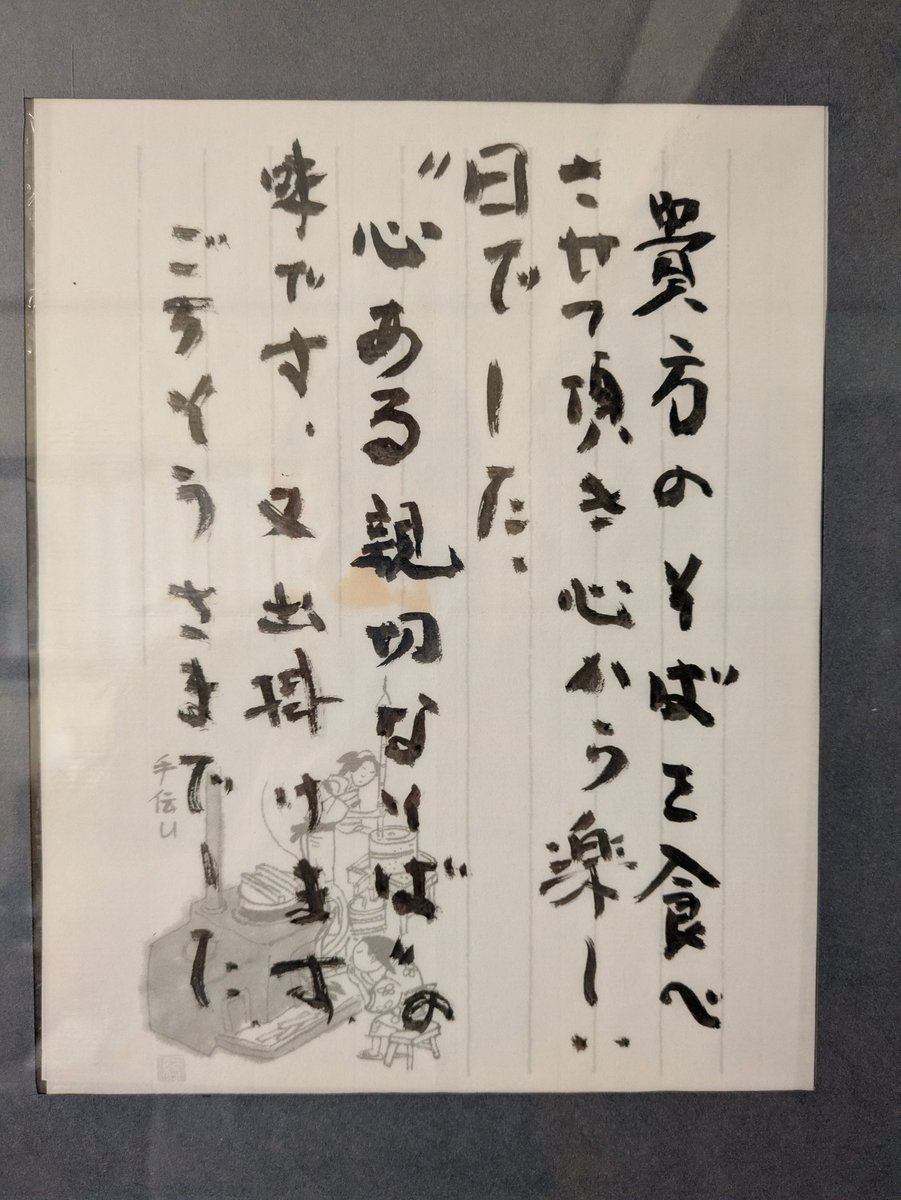 貴方のそばを食べ
させて頂き心から楽しい
日でした.
〝心ある親切なそば〟の
味です. 又出掛けます
ごちそうさまでした
手伝い